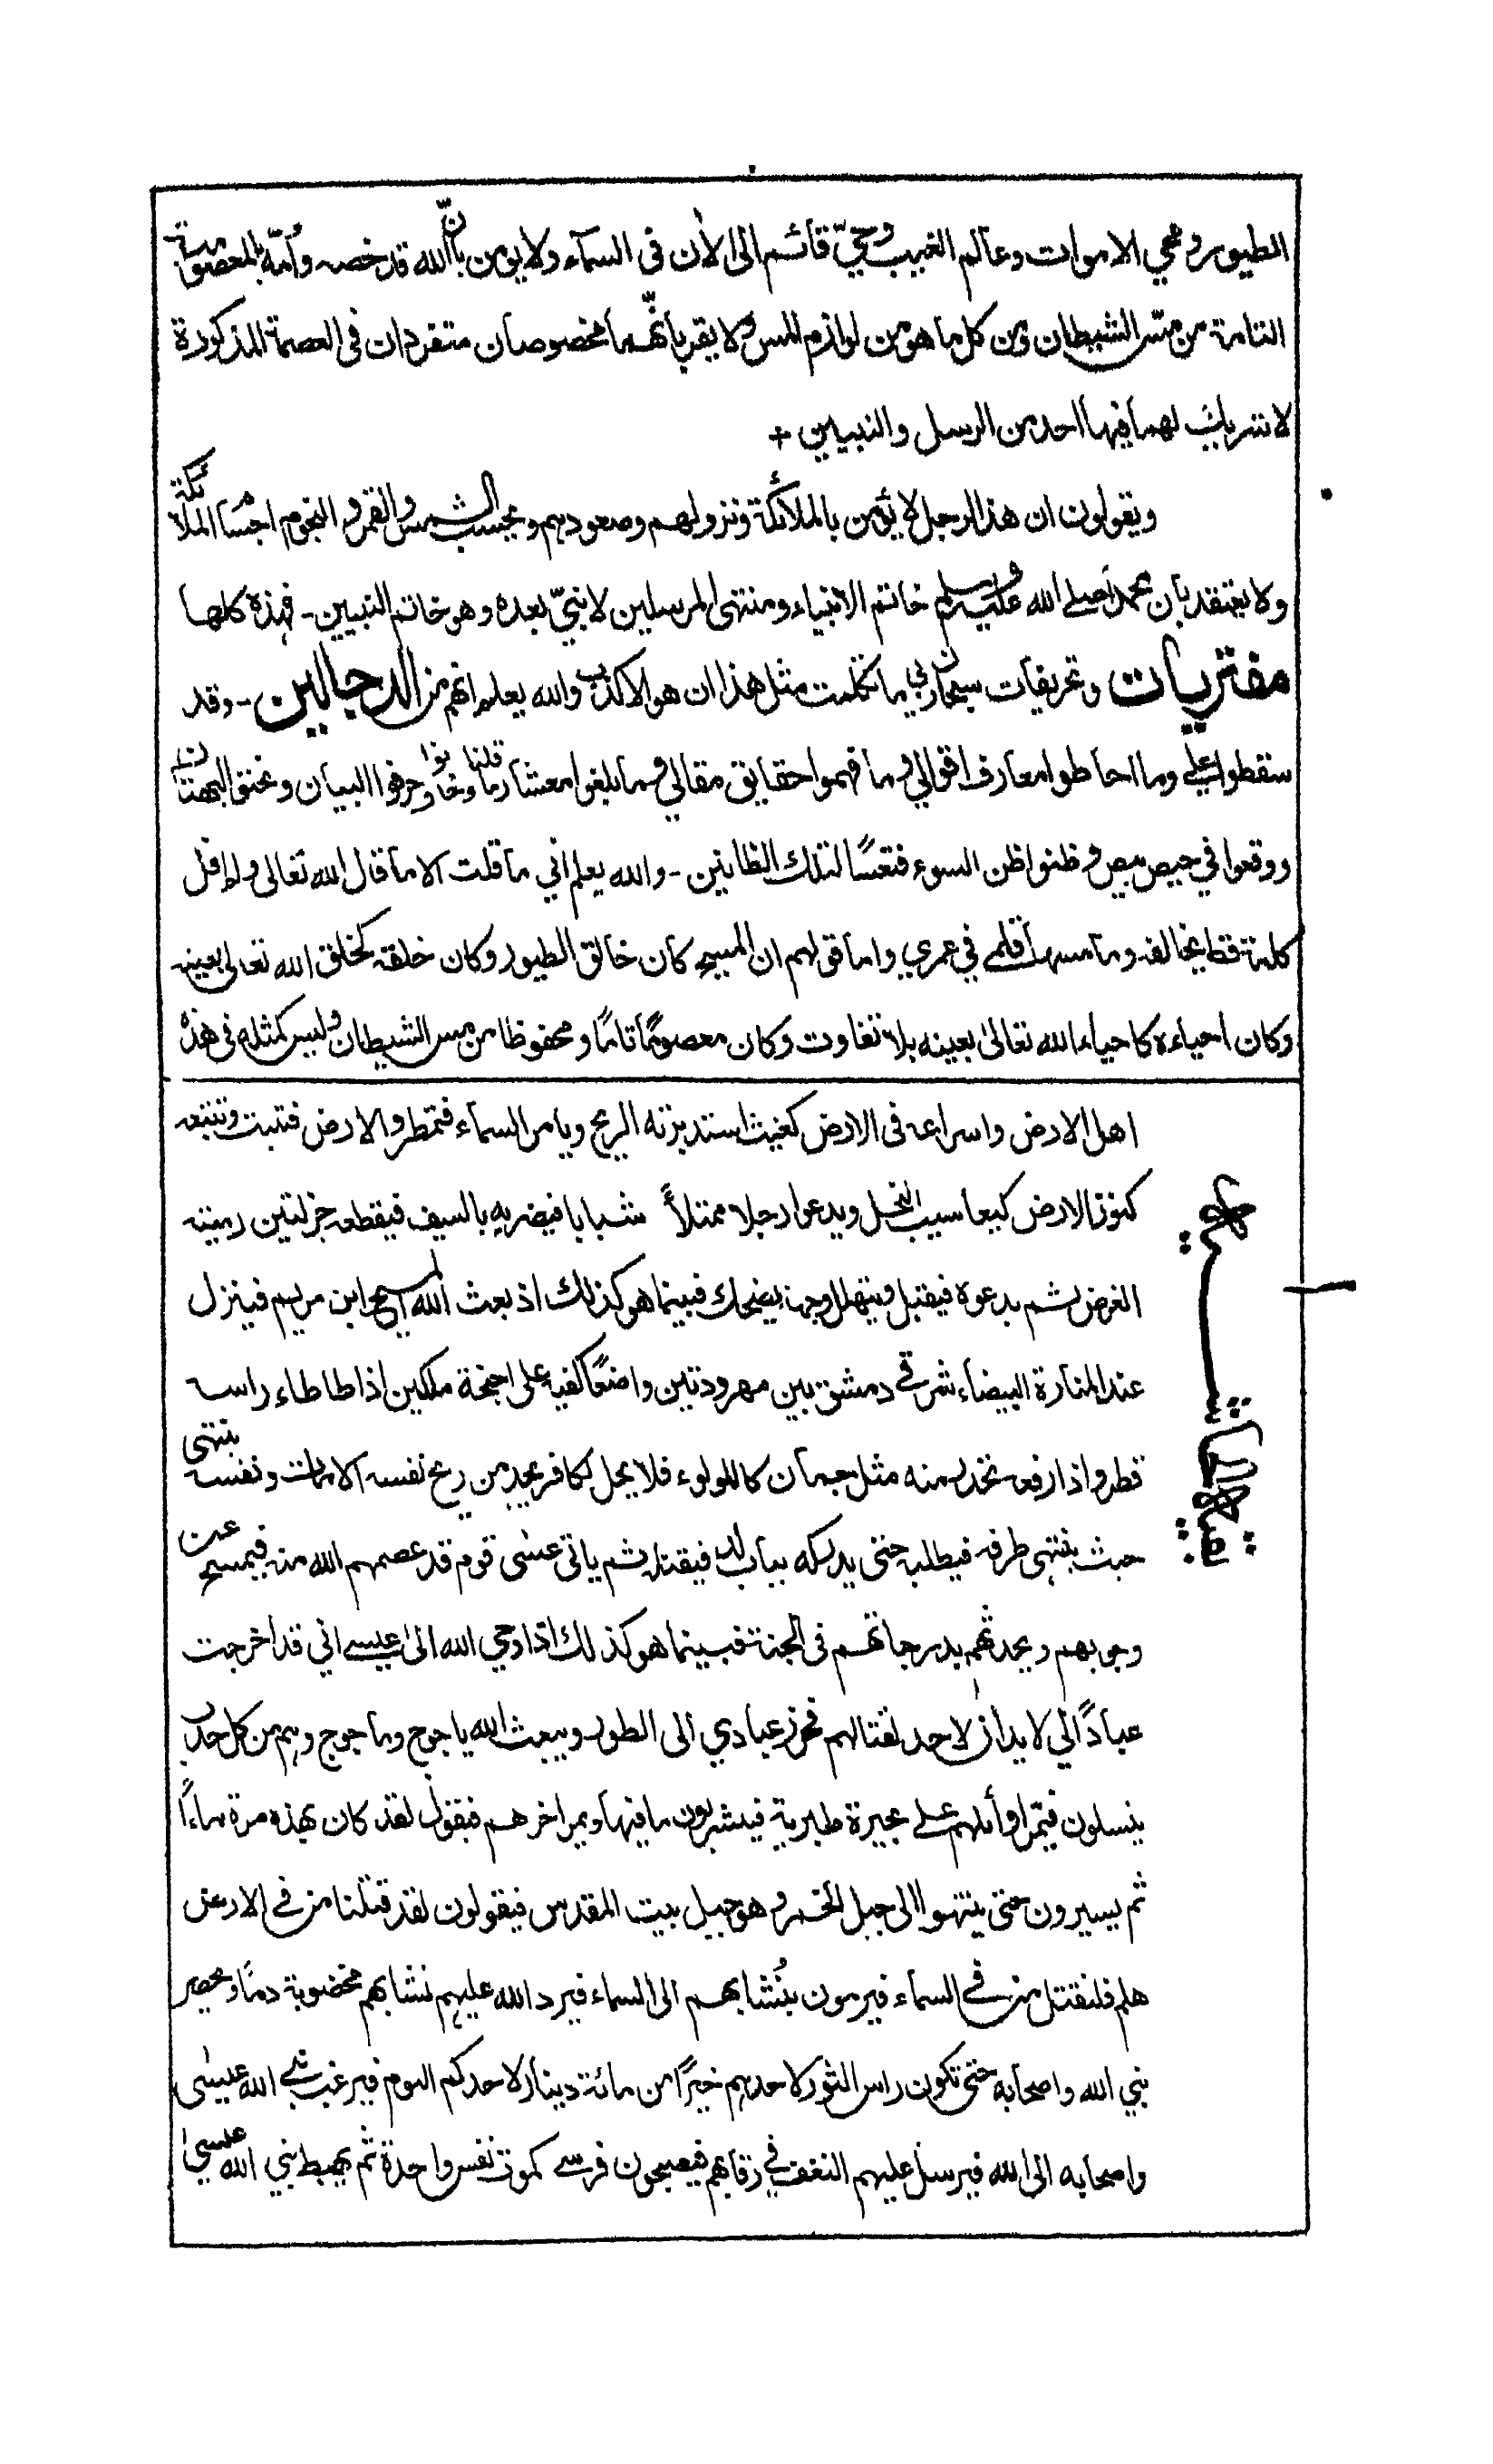 الطيور ومحيي الاموات وعالم الغيب وحيّ قائم الى الآن في السمآء ولا يؤمن بأنّ الله قد خصه وأُمّه بالمعصومية
التامة من مسّ الشيطان ومن كل ما هو من لوازم المس ولا يقر بأنّهما مخصوصان متفردان في العصمة المذكورة
لا شريك لهما فيها احد من الرسل والنبيين +
ويقولون ان هذا الرجل لا يؤمن بالملائكة ونزولهم وصعودهم ويحسب الشمس والقمر والنجوم اجسام الملائكة
ولا يعتقد بأن محمدا صلى الله عليه وسلم خاتم الانبياء ومنتهى المرسلين لا نبيّ بعده وهو خاتم النبيين - فهذه كلها
مفتريات وتحريفات سبحان ربي ما تكلمت مثل هذا ان هو الا كذب والله يعلم انهم من الدجالين - وقد
سقطوا علي وما احاطوا معارف اقوالي وما فهموا حقايق مقالي وما بلغوا معشار ما قلنا وخانوا وحرفوا البيان ونحتوا البهتان
ووقعوا في حيص بيص وظنوا ظن السوء فتعسًا لتلك الظانين - والله يعلم اني ما قلت الا ما قال الله تعالى ولم اقل
كلمة قط يخالفه وما مسها قلمي في عمري واما قولهم ان المسيح كان خالق الطيور وكان خلقه كخلق الله تعالى بعينه
وكان احياءه كاحياء الله تعالىٰ بعينه بلا تفاوت وكان معصومًا تامًا ومحفوظا من مس الشيطان وليس كمثله في هذه
اهل الارض واسراعه في الارض كغيث استدبرته الريح ويامر السمآء فتمطر والارض فتنبت وتتبعه
كنوز الارض كيعاسيب النخل ويدعوا رجلا ممتلأً شبابا فيضربه بالسيف فيقطعه جزلتين رمية
الغرض ثم يدعوه فيقبل ويتهلل وجهه يضحك فبينما هو كذلك اذ بعث الله المسيح ابن مريم فينزل
عند المنارة البيضاء شرقي دمشق بين مهرودتين واضعًا كفيه على اجنحة ملكين اذا طاطاء راسه
قطر واذا رفعه تحدر منه مثل جمان كاللولوء فلا يحل لكافر يجد من ريح نفسه الا مات ونفسه ينتهي
حيث ينتهي طرفه فيطلبه حتى يدركه بباب لد فيقتله ثم ياتي عيسٰى قوم قد عصمهم الله منه فيمسح عن
وجوههم ويحدثهم بدرجاتهم في الجنة فبينما هو كذلك اذ اوحي الله الىٰ عيسے اني قد اخرجت
عبادًا لي لا يدان لاحد لقتالهم فحرز عبادي الى الطور ويبعث الله ياجوج وماجوج وهم من كل حدب
ينسلون فيمّر اوائلهم على بحيرة طبرية فيشربون ما فيها ويمر اخرهم فيقول لقد كان بهذه مرة ماءًا
ثم يسيرون حتى ينتهوا الى جبل الخمر وهو جبل بيت المقدس فيقولون لقد قتلنا من في الارض
هلم فلنقتل من في السمآء فيرمون بنُشابهم الى السماء فيرد الله عليهم نشابهم مخضوبة دمًا ويحصر
نبي الله واصحابه حتى تكون راس الثور لاحدهم خيرًا من مائة دينار لاحدكم اليوم فيرغب نبي الله عيسٰى
واصحابه الى الله فيرسل عليهم النغف في رقابهم فيصبحون فرسے كموت نفس واحدة ثم يهبط نبي الله عيسىٰ